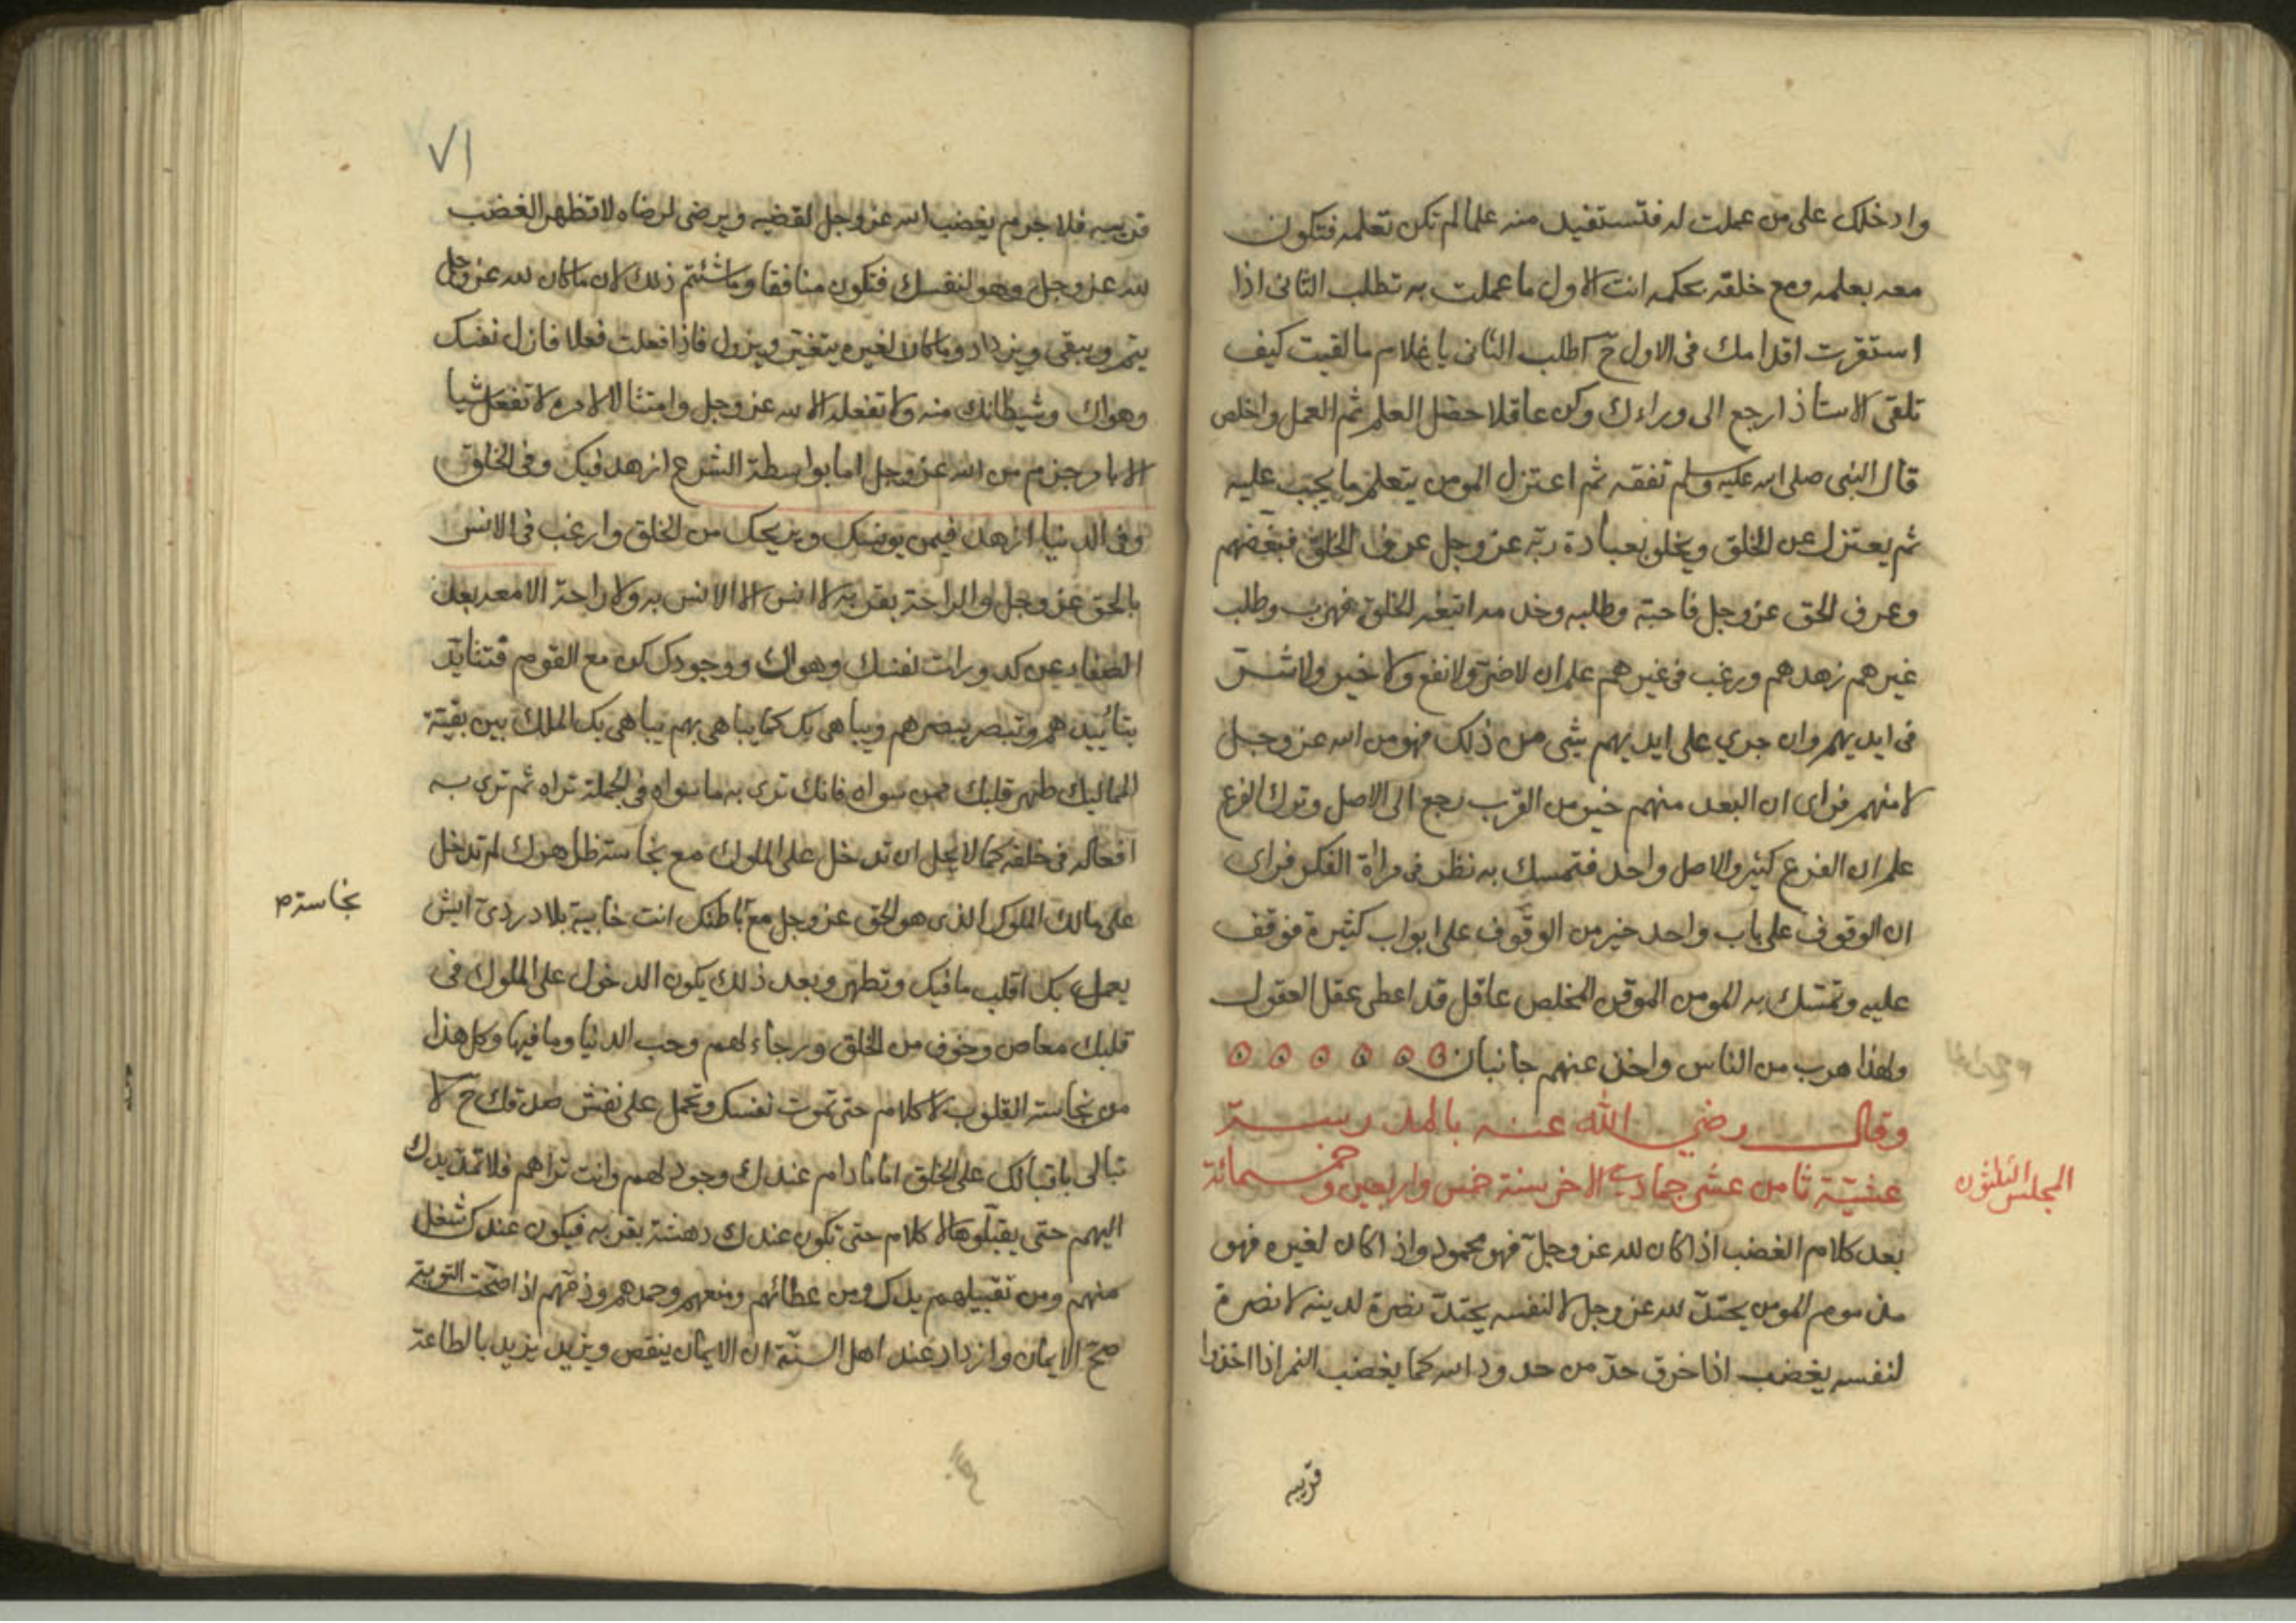 وادخلك على من عملت له فتستفيد منه علما لم تكن تعلمه فتكون
معه بعلمه ومع خلقه بحكمه انت الاول ما عملت به تطلب الثانى اذا
استقرت اقدامك فى الاول ح اطلب الثانى يا غلام ما لقيت كيف
تلقى الاستاذ ارجع الى وراءك وكن عاقلا حصل العلم ثم العمل واخلص
قال النبى صلى الله عليه وسلم تفقه ثم اعتزل المومن يتعلم ما يجب عليه
ثم يعتزل عن الخلق ويخلو بعبادة ربه عز وجل عرف الخلق فبغضهم
وعرف الحق عز وجل فاحبه وطلبه وخدمه اتبعه الخلق فهرب وطلب
غيرهم زهدهم ورغب فى غيرهم علم ان لا ضر ولا نفع ولا خير ولا شر
فى ايديهم وان جرى على ايديهم شى من ذلك فهو من الله عز وجل
لا منهم فراى ان البعد منهم خير من القرب رجع الى الاصل وترك الفرع
علم ان الفرع كثير والاصل واحد فتمسك به نظر فى مراة الفكر فراى
ان الوقوف على باب واحد خير من الوقوف على ابواب كثيرة فوقف
عليه وتمسك به المومن الموقن المخلص عاقل قد اعطى عقل العقول
ولهذا هرب من الناس واخذ عنهم جانبا
وقال رضي الله عنه بالمدرسة
عشية ثامن عشر جمادي الاخر سنة خمس واربعين وخمسمائة
المجلس الثلثون
بعد كلام الغضب اذا كان لله عز وجل فهو محمود واذا كان لغيره فهو
مذموم المومن يحتد لله عز وجل لا لنفسه يحتد نصرة لدينه لا نصرة
لنفسه يغضب اذا خرق حد من حدود الله كما يغضب النمر اذا اخذوا
قريبه
٧١
قريبه فلا جرم يغضب الله عز وجل لغضبه ويرضى لرضاه لا تظهر الغضب
لله عز وجل وهو لنفسك فتكون منافقا وما شئتم ذلك لان ما كان لله عز وجل
يتم ويبقى ويزداد وما كان لغيره يتغير ويزول فاذا فعلت فعلا فازل نفسك
وهواك وشيطانك منه ولا تفعله الا لله عز وجل وامتثالا لامره لا تفعل شيا
الا بامر جزم من الله عز وجل اما بواسطة الشرع ازهد فيك وفى الخلق
وفى الدنيا ازهد فيمن يونسك ويريحك من الخلق وارغب فى الانس
بالحق عز وجل والراحة بقربه لا انس الا الانس به ولا راحة الا معه بعد
الصفاء عن كدورات نفسك وهواك ووجودك كن مع القوم فتتايد
بتائيدهم وتبصر ببصرهم ويباهى بك كما يباهى بهم يباهى بك الملك بين بقية
المماليك طهر قلبك ممن سواه فانك ترى به ما سواه فى الجملة تراه ثم ترى به
افعاله فى خلقه كما لا يحل ان تدخل على الملوك مع نجاسة ظاهرك لم تدخل
على مالك الملوك الذى هو الحق عز وجل مع باطنك انت خابية بلا دردى ايش
نجاسة م
يعمل بك اقلب ما فيك وتطهر وبعد ذلك يكون الدخول على الملوك فى
قلبك معاص وخوف من الخلق ورجاء لهم وحب الدنيا وما فيها وكل هذا
من نجاسة القلوب لا كلام حتى تموت نفسك وتحمل على نعش صدقك ح لا
تبالى باقبالك على الخلق اما ما دام عندك وجود لهم وانت تراهم فلا تمد يدك
اليهم حتى يقبلوها لا كلام حتى تكون عندك دهشة بقربه فيكون عندك شغل
منهم ومن تقبيلهم يدك ومن عطائهم ومنعهم وحمدهم وذمهم اذا صحت التوبة
صح الايمان وازداد عند اهل السنة ان الايمان ينقص ويزيد يزيد بالطاعة